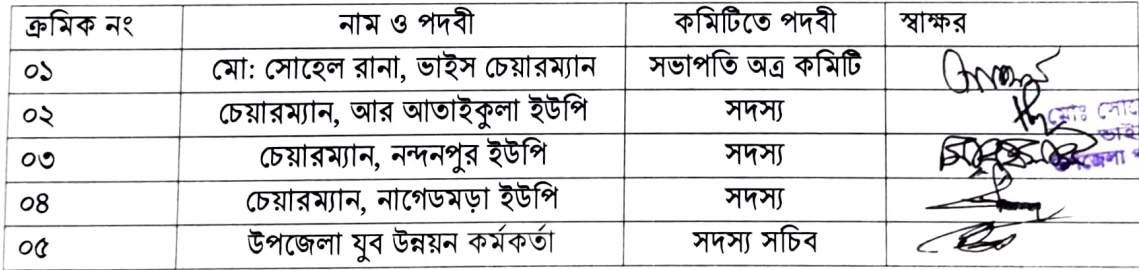 ক্রমিক নং নাম ও পদবী কমিটিতে পদবী স্বাক্ষর
০১ মো: সোহেল রানা, ভাইস চেয়ারম্যান সভাপতি অত্র কমিটি
০২ চেয়ারম্যান, আর আতাইকুলা ইউপি সদস্য
০৩ চেয়ারম্যান, নন্দনপুর ইউপি সদস্য
০৪ চেয়ারম্যান, নাগেডমড়া ইউপি সদস্য
০৫ উপজেলা যুব উন্নয়ন কর্মকর্তা সদস্য সচিব
মোঃ
ভাইস